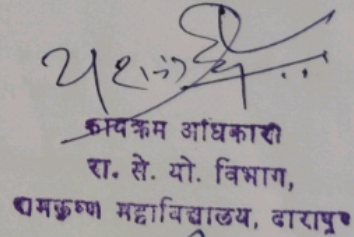 कार्यक्रम अधिकारी
रा. से. यो. विभाग,
रामकृष्ण महाविद्यालय, दारापुर